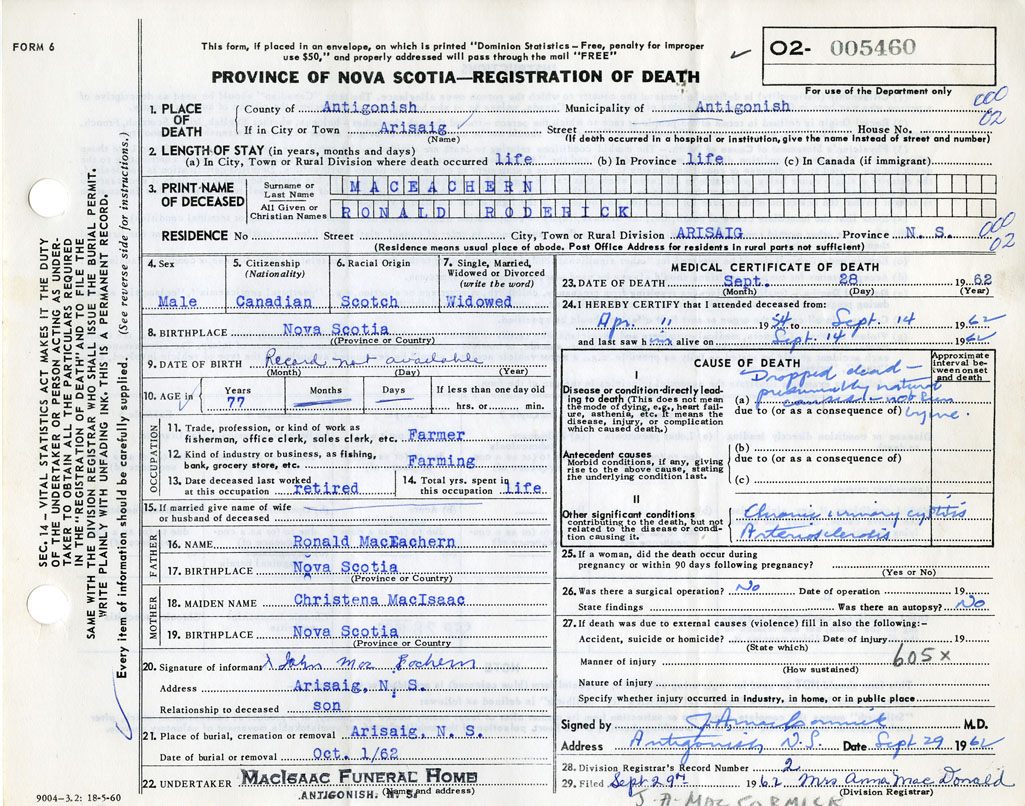 FORM 6
This form, if placed in an envelope, on which is printed "Dominion Statistics – Free, penalty for improper
use $50," and properly addressed will pass through the mail "FREE"
O2- 005460
PROVINCE OF NOVA SCOTIA—REGISTRATION OF DEATH
For use of the Department only
000
02
1. PLACE OF DEATH
County of Antigonish Municipality of Antigonish
If in City or Town Arisaig Street House No.
(Name) (If death occurred in a hospital or institution, give the name instead of street and number)
2. LENGTH OF STAY (in years, months and days)
(a) In City, Town or Rural Division where death occurred life (b) In Province life (c) In Canada (if immigrant)
3. PRINT NAME OF DECEASED
Surname or Last Name MACEACHERN
All Given or Christian Names RONALD RODERICK
000
02
RESIDENCE No Street City, Town or Rural Division ARISAIG Province N. S.
(Residence means usual place of abode. Post Office Address for residents in rural parts not sufficient)
4. Sex
Male
5. Citizenship (Nationality)
Canadian
6. Racial Origin
Scotch
7. Single, Married, Widowed or Divorced (write the word)
Widowed
8. BIRTHPLACE Nova Scotia
(Province or Country)
9. DATE OF BIRTH Record not available
(Month) (Day) (Year)
10. AGE in
Years 77
Months
Days
If less than one day old
hrs. or min.
OCCUPATION
11. Trade, profession, or kind of work as
fisherman, office clerk, sales clerk, etc. Farmer
12. Kind of industry or business, as fishing,
bank, grocery store, etc. Farming
13. Date deceased last worked
at this occupation retired
14. Total yrs. spent in
this occupation life
15. If married give name of wife
or husband of deceased
FATHER
16. NAME Ronald MacEachern
17. BIRTHPLACE Nova Scotia
(Province or Country)
MOTHER
18. MAIDEN NAME Christena MacIsaac
19. BIRTHPLACE Nova Scotia
(Province or Country)
20. Signature of informant John Mac Eachern
Address Arisaig, N. S.
Relationship to deceased son
21. Place of burial, cremation or removal Arisaig, N. S.
Date of burial or removal Oct. 1/62
22. UNDERTAKER MACISAAC FUNERAL HOME
ANTIGONISH. N. S. (Name and address)
9004–3.2: 18-5-60
MEDICAL CERTIFICATE OF DEATH
23. DATE OF DEATH Sept. 28 1962
(Month) (Day) (Year)
24. I HEREBY CERTIFY that I attended deceased from:
Apr. 11 1954 to Sept. 14 1962
and last saw him alive on Sept. 14 1962
CAUSE OF DEATH
Approximate interval between onset and death
I
Disease or condition directly leading to death (This does not mean
the mode of dying, e.g., heart failure, asthenia, etc. It means the
disease, injury, or complication
which caused death.)
Dropped dead –
presumably natural
(a)
due to (or as a consequence of)
Antecedent causes
Morbid conditions, if any, giving
rise to the above cause, stating
the underlying condition last.
(b)
due to (or as a consequence of)
(c)
II
Other significant conditions
contributing to the death, but not
related to the disease or condition
causing it.
Chronic urinary cystitis
Arteriosclerosis
25. If a woman, did the death occur during
pregnancy or within 90 days following pregnancy?
(Yes or No)
26. Was there a surgical operation? No Date of operation 19
State findings Was there an autopsy? No
27. If death was due to external causes (violence) fill in also the following:–
Accident, suicide or homicide? Date of injury 19
(State which)
605x
Manner of injury
(How sustained)
Nature of injury
Specify whether injury occurred in industry, in home, or in public place
Signed by J. A. MacCormick M.D.
Address Antigonish, N.S. Date Sept 29 1962
28. Division Registrar's Record Number 2
29. Filed Sept 29th 1962 Mrs Anna MacDonald
(Division Registrar)
J. A. MACCORMICK
SEC. 14 – VITAL STATISTICS ACT MAKES IT THE DUTY
OF THE UNDERTAKER PERSON ACTING AS UNDER-
TAKER TO OBTAIN ALL THE PARTICULARS REQUIRED
IN THE "REGISTRATION OF DEATH" AND TO FILE THE
SAME WITH THE DIVISION REGISTRAR WHO SHALL ISSUE THE BURIAL PERMIT.
WRITE PLAINLY WITH UNFADING INK. THIS IS A PERMANENT RECORD.
Every item of information should be carefully supplied. (See reverse side for instructions.)